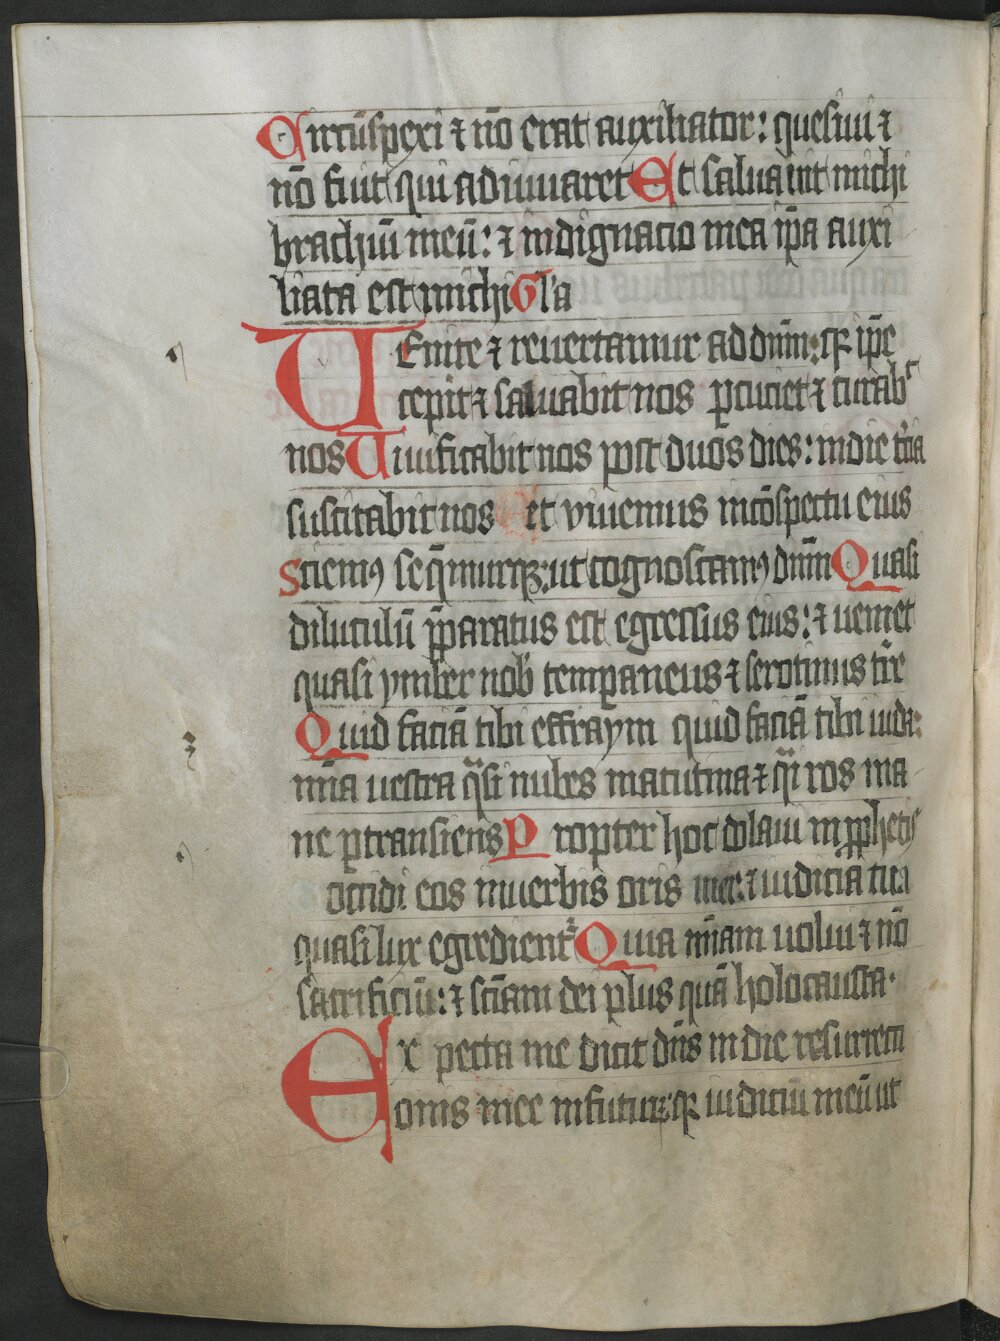 Circūspexi ⁊ nō erat auxiliator: quesiui ⁊
nō fuit qui adiuuaret Et saluauit michi
brachiū meū: ⁊ indignacio mea ip̄a auxi
liata est michi Gl'a
Uenite ⁊ reuertamur ad dn̄m: qꝛ ip̄e
cepit ⁊ saluabit nos ꝑcuciet ⁊ curab᷑
nos Uiuificabit nos post duos dies: in die t̄cia
suscitabit nos et viuemus in cōspectu eius
Sciemꝰ seq̄murqꝫ: ut cognoscamꝰ dn̄m Quasi
diluculū p̄paratus est egressus eius: ⁊ ueniet
quasi ymber nob̄ temꝑaneus ⁊ serotinus t̄re
Quid faciā tibi effraym quid faciā tibi iuda:
mīa uestra q̄si nubes matutina ⁊ q̄i ros ma
ne ꝑtransiens Propter hoc dolaui in ꝓphetis
occidi eos in uerbis oris mei: ⁊ iudicia tua
quasi lux egredient᷑ Quia mīam uolui ⁊ nō
sacrificiū: ⁊ sciam dei plus quā holocausta.
Expecta me dicit dn̄s in die resurrecti
onis mee in futurꝝ qꝛ iudiciū meū ut